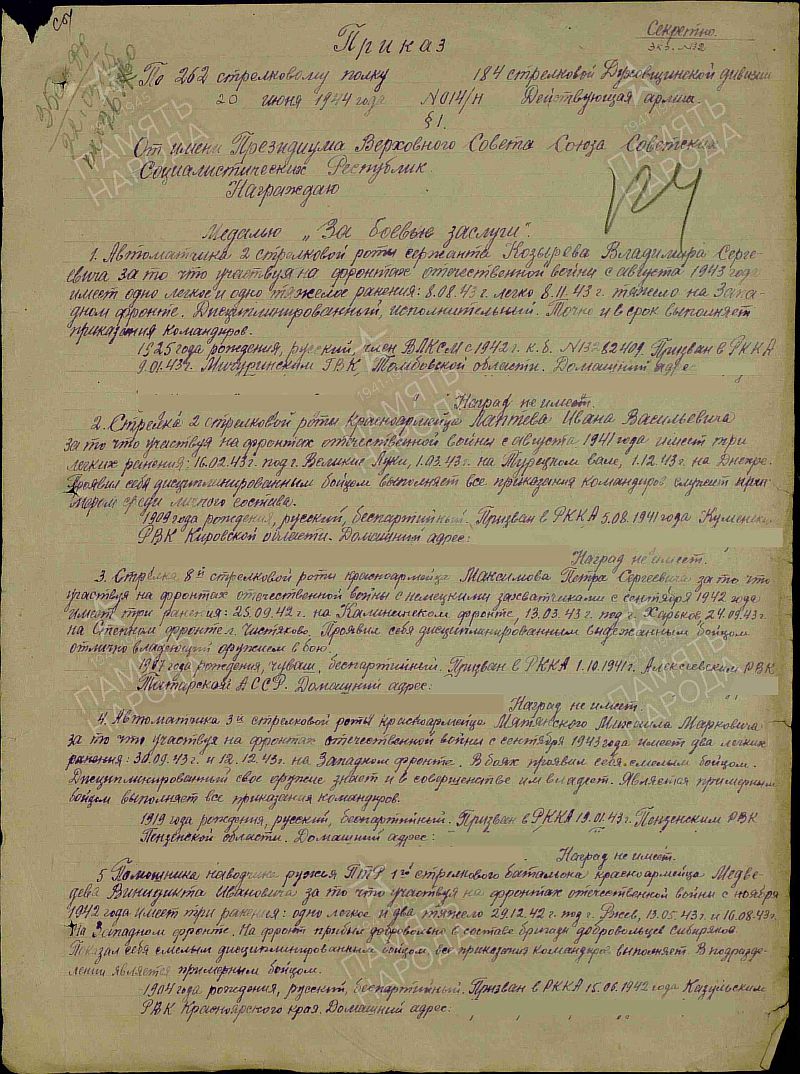 Секретно.
Экз. №2
Приказ
По 262 стрелковому полку 184 стрелковой Духовщинской дивизии
20 июня 1944 года №014/Н Действующая армия.
§1.
От имени Президиума Верховного Совета Союза Советских
Социалистических Республик
Награждаю
Медалью „За боевые заслуги".
1. Автоматчика 2 стрелковой роты сержанта Козырева Владимира Серге-
евича за то что участвуя на фронтах отечественной войны с августа 1943 года
имеет одно легкое и одно тяжелое ранения: 8.08.43 г. легко 8.11.43 г. тяжело на Запа-
дном фронте. Дисциплинированный, исполнительный. Точно и в срок выполняет
приказания командиров.
1925 года рождения, русский, член ВЛКСМ с 1942 г. к.б. №13282409. Призван в РККА
9.01.43 г. Мичуринским ГВК, Тамбовской области. Домашний адрес
Наград не имеет.
2. Стрелка 2 стрелковой роты красноармейца Лаптева Ивана Васильевича
за то что участвуя на фронтах отечественной войны с августа 1941 года имеет три
легких ранения: 16.02.43 г. под г. Великие Луки, 1.03.43 г. на Турецком вале, 1.12.43 г. на Днепре.
Проявил себя дисциплинированным бойцом выполняет все приказания командиров служит при-
мером среди личного состава.
1909 года рождения, русский, беспартийный. Призван в РККА 5.08.1941 года Куменск
РВК Кировской области. Домашний адрес:
Наград не имеет.
3. Стрелка 8й стрелковой роты красноармейца Максимова Петра Сергеевича за то что
участвуя на фронтах отечественной войны с немецкими захватчиками с сентября 1942 года
имеет три ранения: 25.09.42 г. на Калининском фронте, 13.03.43 г. под г. Харьков, 24.09.43 г.
на Степном фронте г. Чистяково. Проявил себя дисциплинированным выдержанным бойцом
отлично владеющий оружием в бою.
1907 года рождения, чуваш, беспартийный. Призван в РККА 1.10.1941 г. Алексеевским РВК
Татарской АССР. Домашний адрес:
Наград не имеет.
4. Автоматчика 3й стрелковой роты красноармейца Матянского Михаила Марковича
за то что участвуя на фронтах отечественной войны с сентября 1943 года имеет два легких
ранения: 30.09.43 г. и 12.12.43 г. на Западном фронте. В боях проявил себя смелым бойцом.
Дисциплинированный свое оружие знает и в совершенстве им владеет. Является примерным
бойцом выполняет все приказания командиров.
1919 года рождения, русский, беспартийный. Призван в РККА 19.01.43 г. Пензенским РВК
Пензенской области. Домашний адрес:
Наград не имеет.
5 Помошника наводчика ружья ПТР 1го стрелкового батальона красноармейца Медве-
дева Винидикта Ивановича за то что участвуя на фронтах отечественной войны с ноября
1942 года имеет три ранения: одно легкое и два тяжело 29.12.42 г. под г. Ржев, 13.05.43 г. и 16.08.43 г.
на Западном фронте. На фронт прибыл добровольно в составе бригады добровольцев сибиряков.
Показал себя смелым дисциплинированным бойцом, все приказания командиров выполняет. В подразде-
лении является примерным бойцом.
1904 года рождения, русский, беспартийный. Призван в РККА 15.06.1942 года Казульским
РВК Красноярского края. Домашний адрес:
ПАМЯТЬ НАРОДА